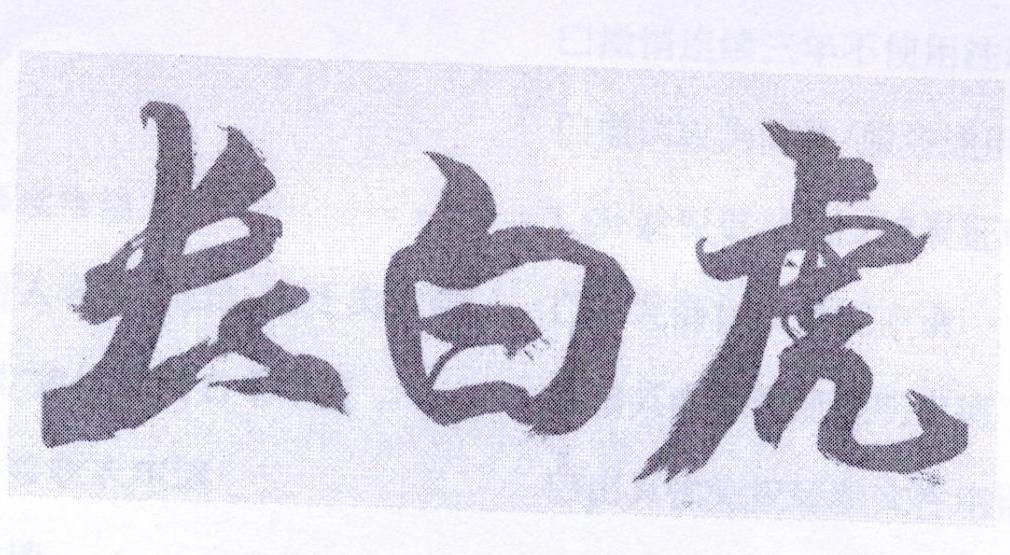 长白虎